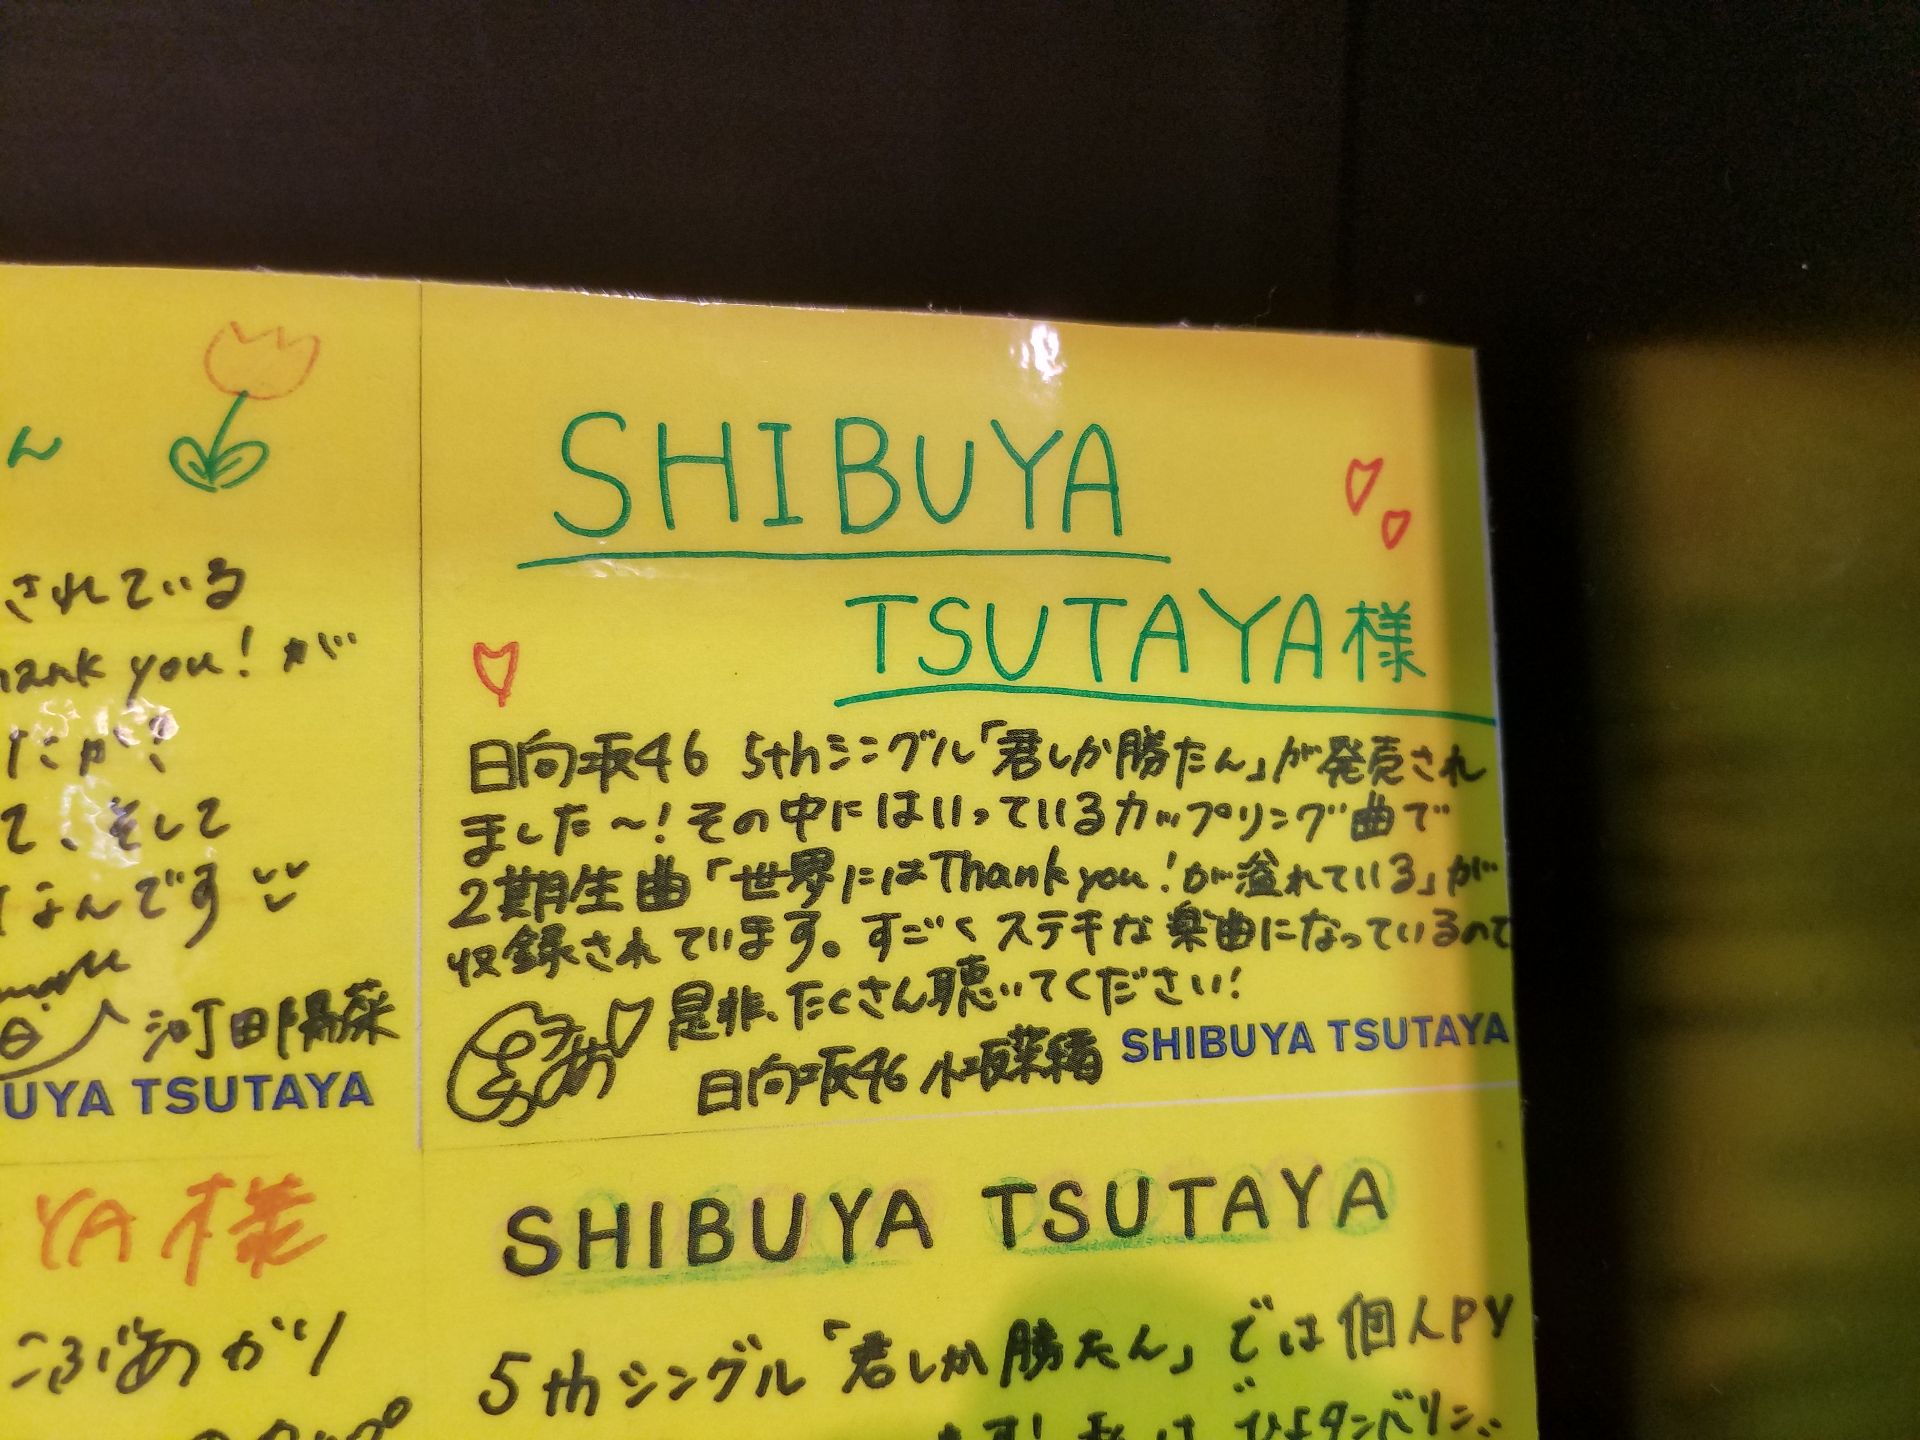 ん
されている
hank you!が
て、そして
なんです
河田陽菜
UYA TSUTAYA
SHIBUYA
TSUTAYA様
日向坂46 5thシングル「君しか勝たん」が発売され
ました～!その中にはいっているカップリング曲で
2期生曲「世界にはThank you!が溢れている」が
収録されています。すごくステキな楽曲になっているので
是非、たくさん聴いてください!
日向坂46 小坂菜緒
SHIBUYA TSUTAYA
YA様
こぶあかり
SHIBUYA TSUTAYA
5thシングル「君しか勝たん」では個人PV